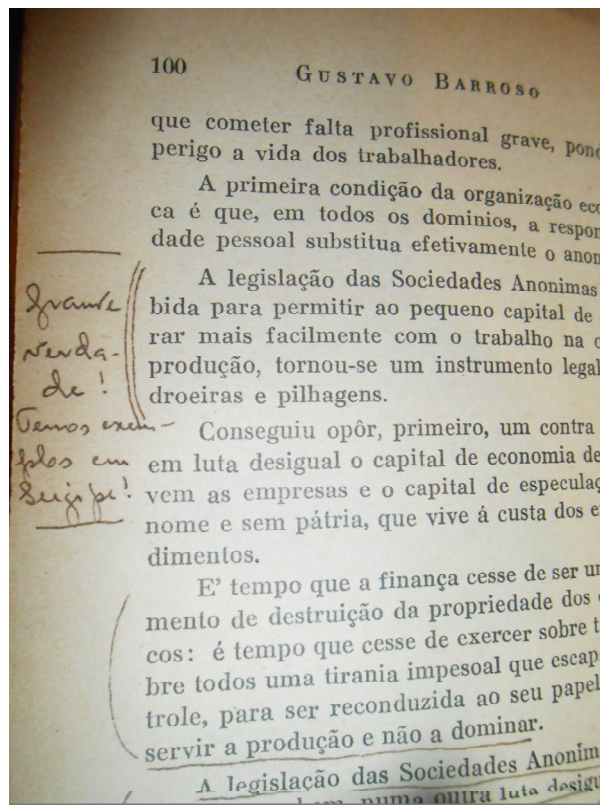 100
GUSTAVO BARROSO
que cometer falta profissional grave, pond
perigo a vida dos trabalhadores.
A primeira condição da organização eco
ca é que, em todos os dominios, a respon
dade pessoal substitua efetivamente o anon
A legislação das Sociedades Anonimas
bida para permitir ao pequeno capital de
rar mais facilmente com o trabalho na o
produção, tornou-se um instrumento legal
droeiras e pilhagens.
Conseguiu opôr, primeiro, um contra
em luta desigual o capital de economia de
vem as empresas e o capital de especulaç
nome e sem pátria, que vive á custa dos e
dimentos.
E' tempo que a finança cesse de ser un
mento de destruição da propriedade dos
cos: é tempo que cesse de exercer sobre t
bre todos uma tirania impesoal que escap
trole, para ser reconduzida ao seu papel
servir a produção e não a dominar.
A legislação das Sociedades Anonim
numa outra luta desigu
Grande
verda-
de!
Temos exem-
plos em
Sergipe!